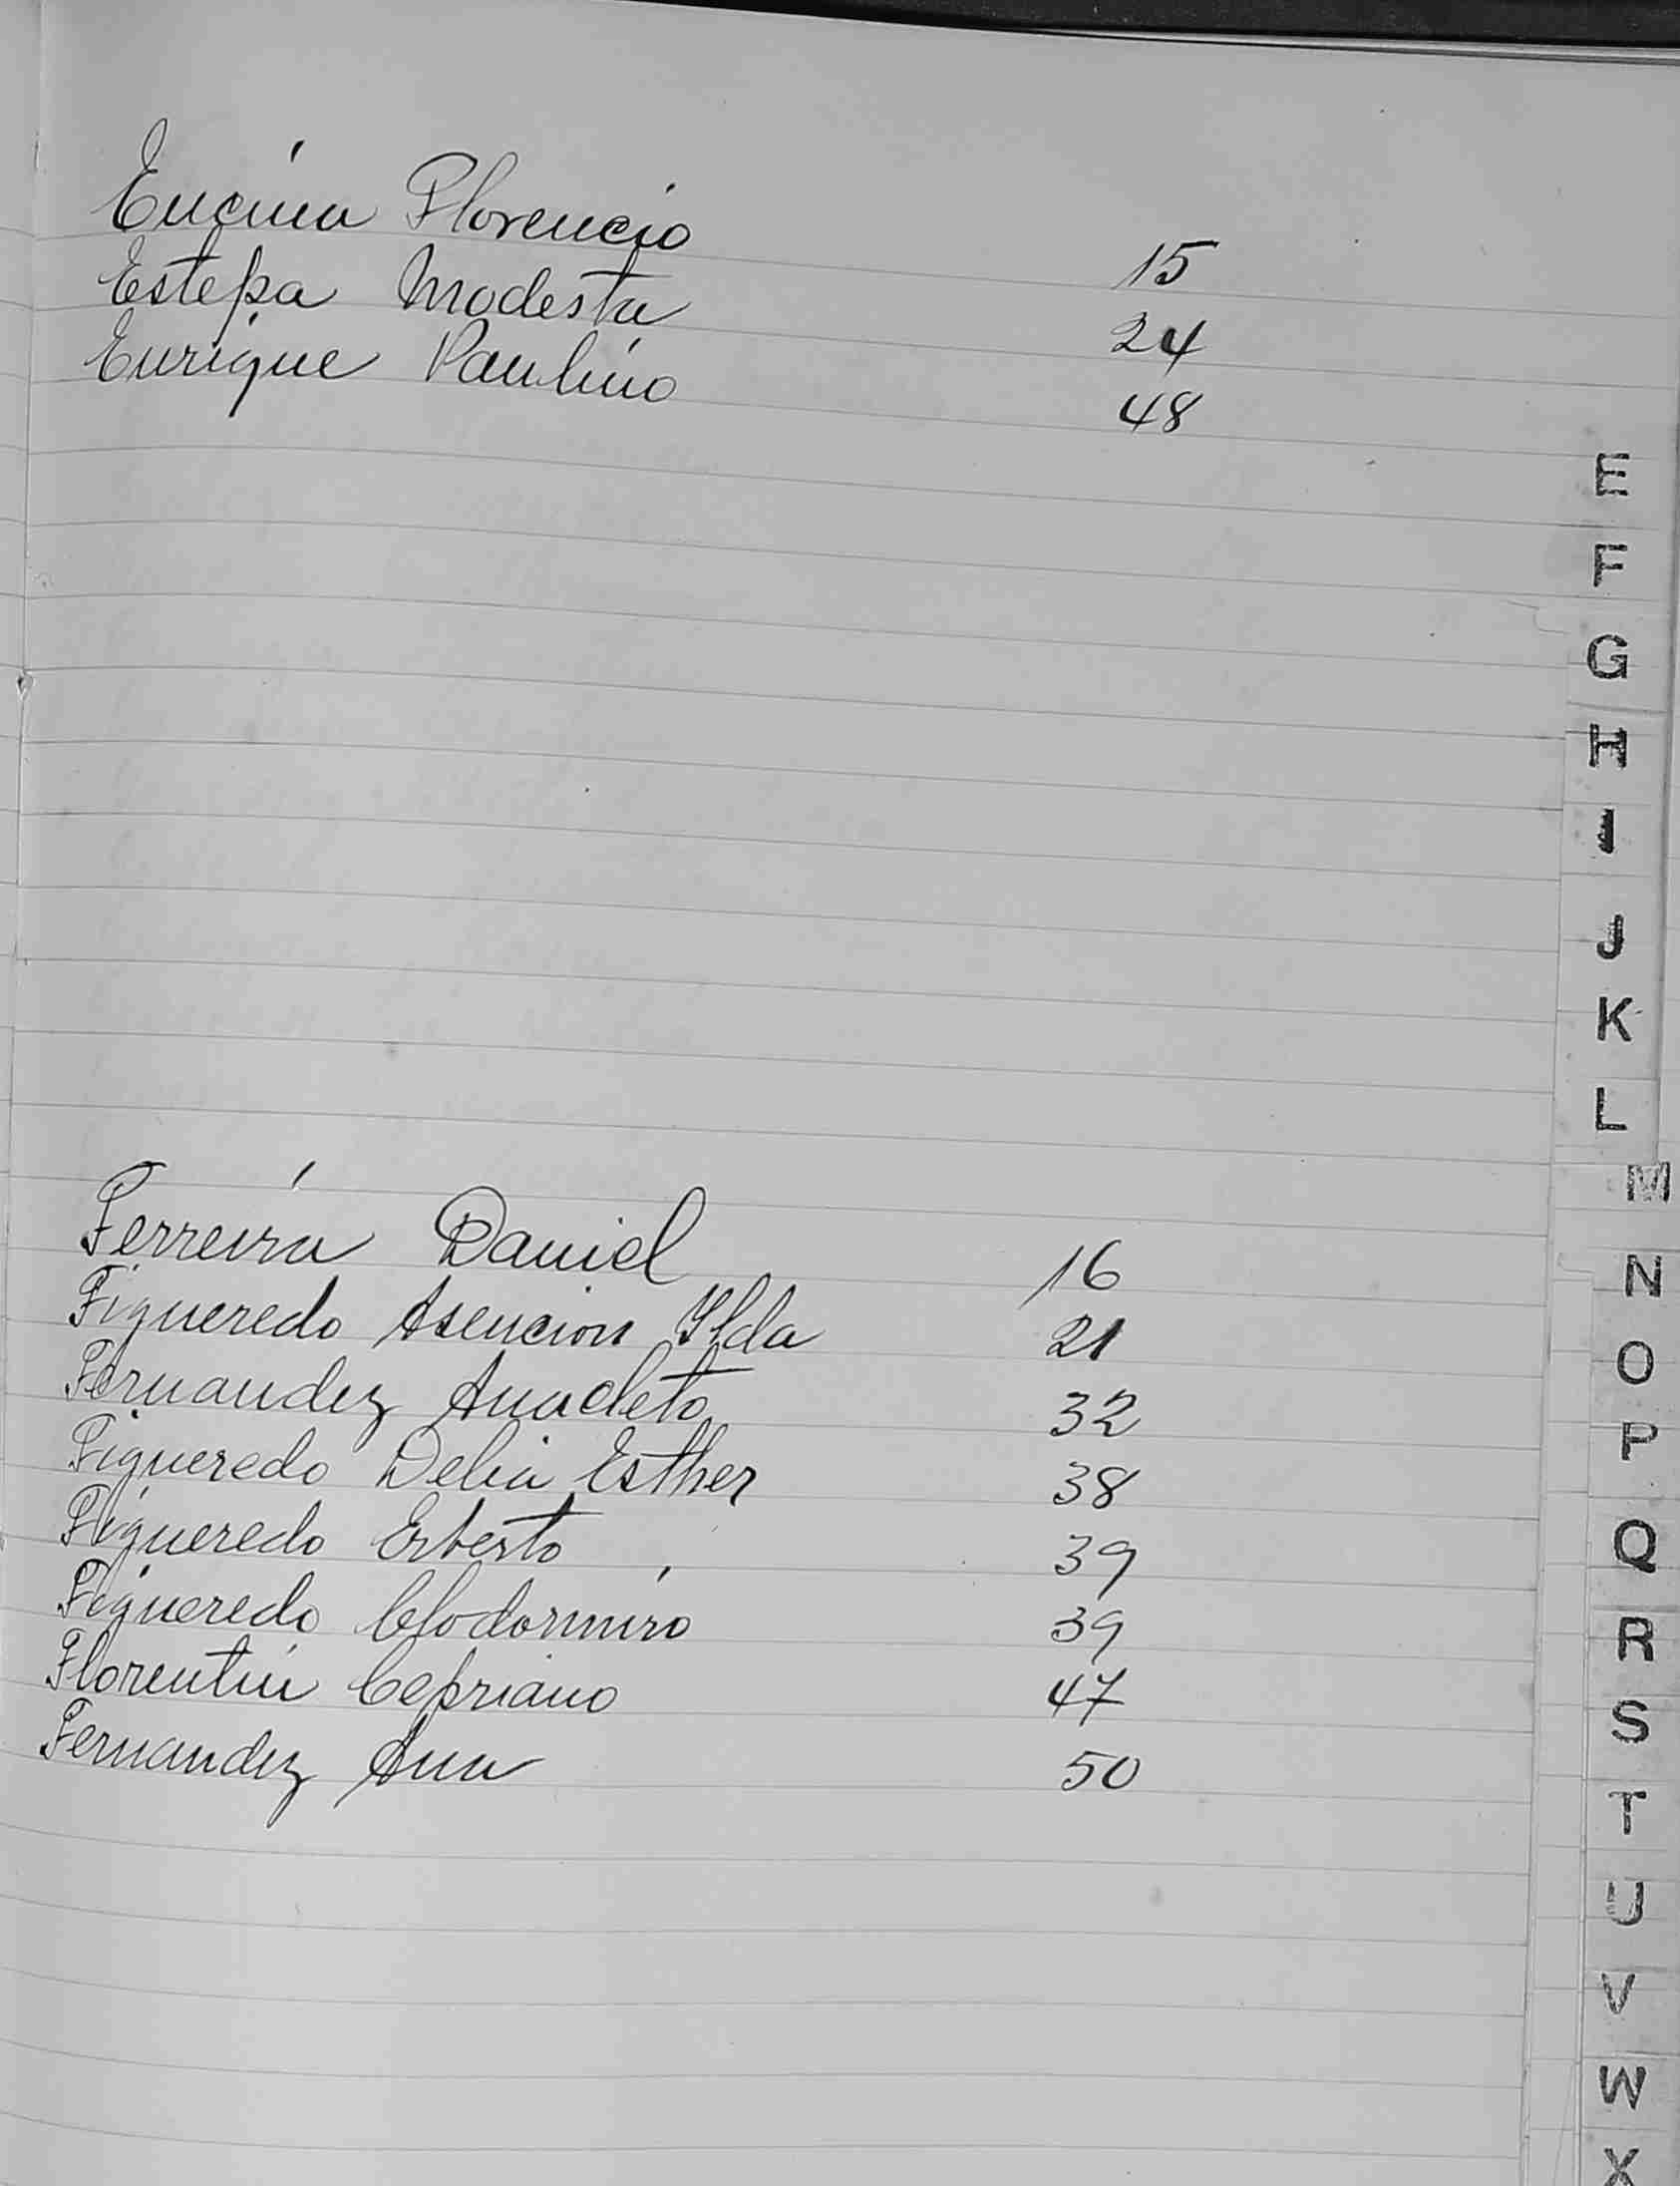 Encina Florencio 15
Estepa Modesta 24
Enrique Paulino 48
E
F
G
H
I
J
K
L
M
Ferreira Daniel 16
Figueredo Asencion Ylda 21
Fernandez Anacleto 32
Figueredo Delia Esther 38
Figueredo Erberto 39
Figueredo Clodormiro 39
Florentin Cepriano 47
Fernandez Ana 50
N
O
P
Q
R
S
T
U
V
W
X